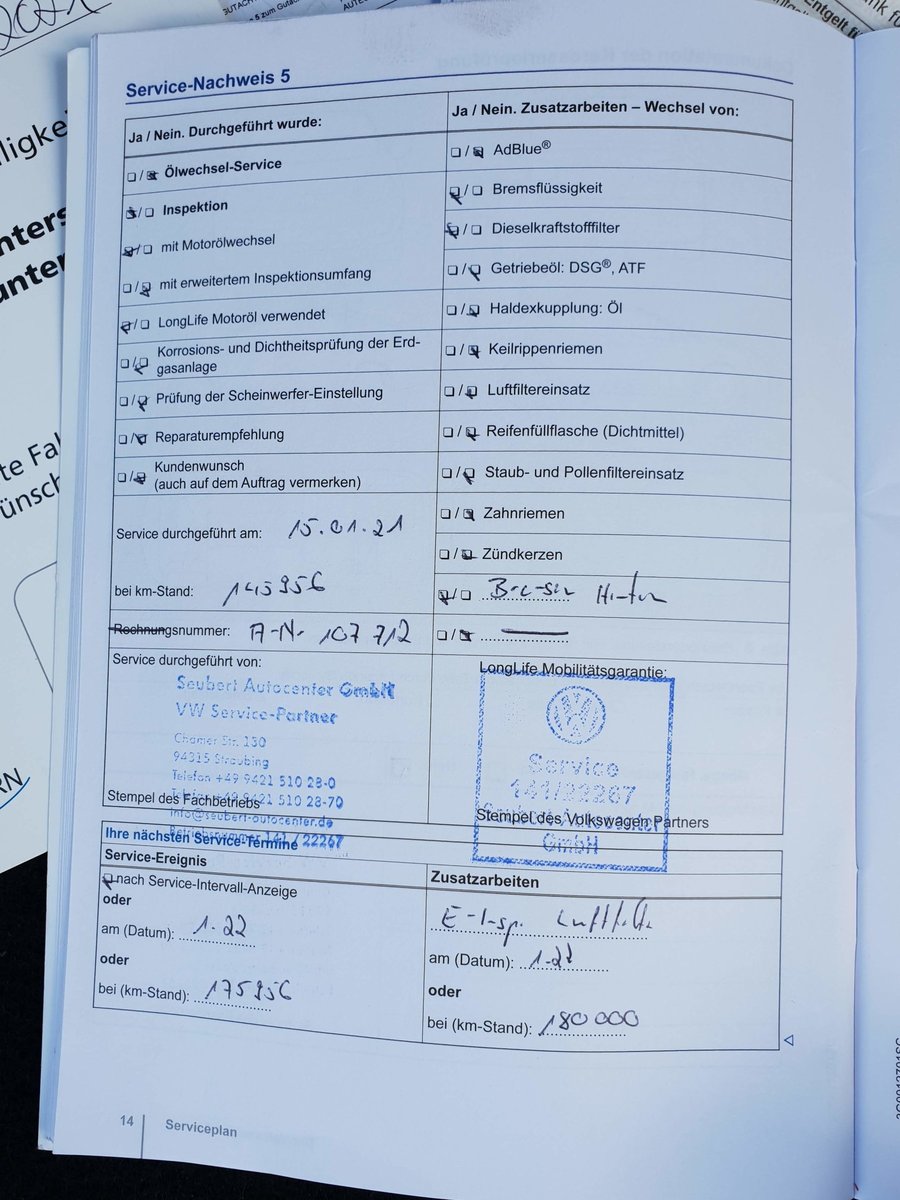 2021
5 zum Gutac
Entgelt fü
lligke
nters
unter
te Fal
ünsch
RN
Service-Nachweis 5
Ja / Nein. Durchgeführt wurde:
Ölwechsel-Service
Inspektion
mit Motorölwechsel
mit erweitertem Inspektionsumfang
LongLife Motoröl verwendet
Korrosions- und Dichtheitsprüfung der Erd-
gasanlage
Prüfung der Scheinwerfer-Einstellung
Reparaturempfehlung
Kundenwunsch
(auch auf dem Auftrag vermerken)
Service durchgeführt am: 15.01.21
bei km-Stand: 145956
Rechnungsnummer: A-Nr. 107 712
Service durchgeführt von:
Seubert Autocenter GmbH
VW Service-Partner
Chamer Str. 130
94315 Straubing
Telefon +49 9421 510 28-0
Telefax +49 9421 510 28-70
Stempel des Fachbetriebs
info@seubert-autocenter.de
Betriebsnummer 141 / 22267
Ja / Nein. Zusatzarbeiten – Wechsel von:
AdBlue®
Bremsflüssigkeit
Dieselkraftstofffilter
Getriebeöl: DSG®, ATF
Haldexkupplung: Öl
Keilrippenriemen
Luftfiltereinsatz
Reifenfüllflasche (Dichtmittel)
Staub- und Pollenfiltereinsatz
Zahnriemen
Zündkerzen
Hinten
LongLife Mobilitätsgarantie:
VW
Service
141/22267
Seubert Autocenter
GmbH
Stempel des Volkswagen Partners
Ihre nächsten Service-Termine
Service-Ereignis
nach Service-Intervall-Anzeige
oder
am (Datum): 1.22
oder
bei (km-Stand): 175956
Zusatzarbeiten
E-Insp. Luftfilter
am (Datum): 1.22
oder
bei (km-Stand): 180 000
14
Serviceplan